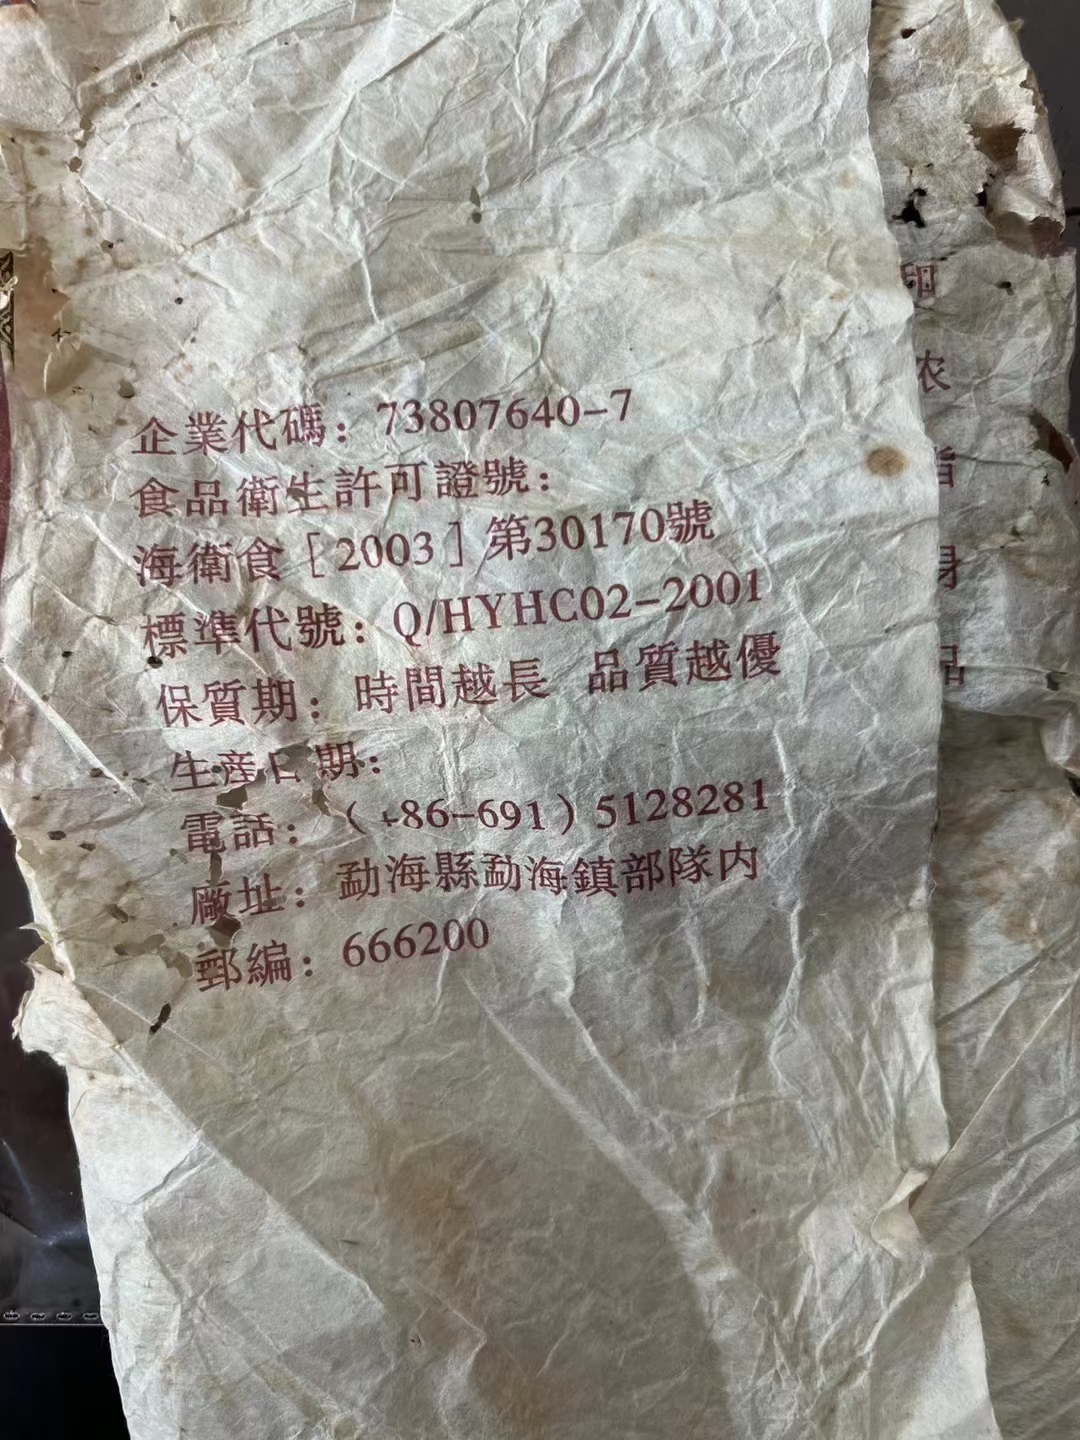 企業代碼：73807640-7
食品衛生許可證號：
海衛食［2003］第30170號
標準代號：Q/HYHC02-2001
保質期：時間越長 品質越優
生産日期：
電話：（+86-691）5128281
廠址：勐海縣勐海鎮部隊内
郵編：666200
和
浓
身
品